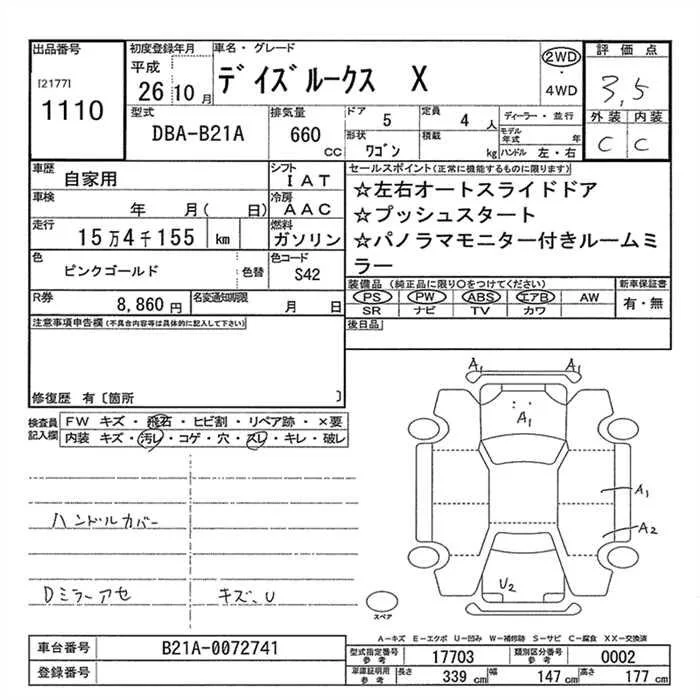 出品番号
[2177]
1110
初度登録年月
平成
26 10 月
車名・グレード
デイズルークス X
2WD
・
4WD
評価点
3,5
外装 内装
C C
型式
DBA-B21A
排気量
660 CC
ドア 5
定員 4 人
形状 ワゴン
積載 kg
ディーラー・並行
モデル年式 年
ハンドル 左・右
車歴 自家用
シフト IAT
車検 年 月( 日)
冷房 AAC
走行 15万4千155 km
燃料 ガソリン
色 ピンクゴールド 色替
色コード S42
R券 8,860円
名変通知期限 月 日
セールスポイント(正常に機能するものに限ります)
☆左右オートスライドドア
☆プッシュスタート
☆パノラマモニター付きルームミ
ラー
装備品(純正品に限り○をつけてください)
PS PW ABS エアB AW
SR ナビ TV カワ
新車保証書
有・無
後日品
注意事項申告欄(不具合内容等は具体的に記入して下さい)
修復歴 有〔箇所 〕
検査員
記入欄
FW キズ・飛石・ヒビ割・リペア跡・×要
内装 キズ・汚レ・コゲ・穴・スレ・キレ・破レ
ハンドルカバー
Dミラーアセ キズ、U
A1 A1
A1
A1
A2
U2
スペア
A-キズ E-エクボ U-凹み W-補修跡 S-サビ C-腐食 XX-交換済
車台番号 B21A-0072741
登録番号
型式指定番号 参考 17703
類別区分番号 参考 0002
車庫証明用 参考
長さ 339 cm 幅 147 cm 高さ 177 cm